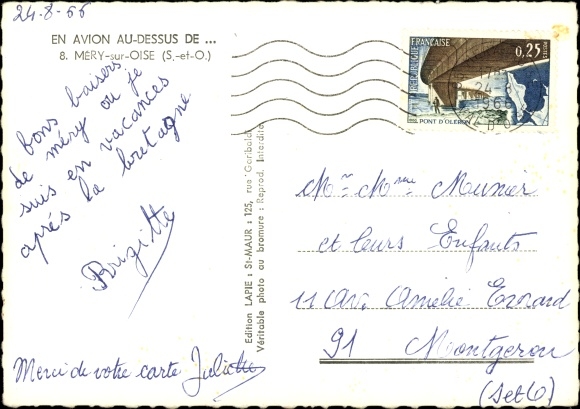 24-8-66
EN AVION AU-DESSUS DE ...
8. MÉRY-sur-OISE (S.-et-O.)
bons baisers
de méry ou je
suis en vacances
aprés la bretagne
Brigitte
Merci de votre carte Juliette
Edition LAPIE : St-MAUR : 125, rue Garibaldi
Véritable photo au bromure : Reprod. Interdite
RÉPUBLIQUE FRANÇAISE
0,25
PONT D'OLERON
24
Mr Mme Meunier
et leurs Enfants
11 Av. Amélie
91 Montgeron
(S et O)